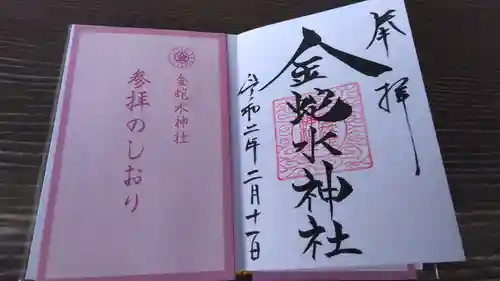 金蛇水神社
参拝のしおり
奉拝
金蛇水神社
令和二年二月十一日